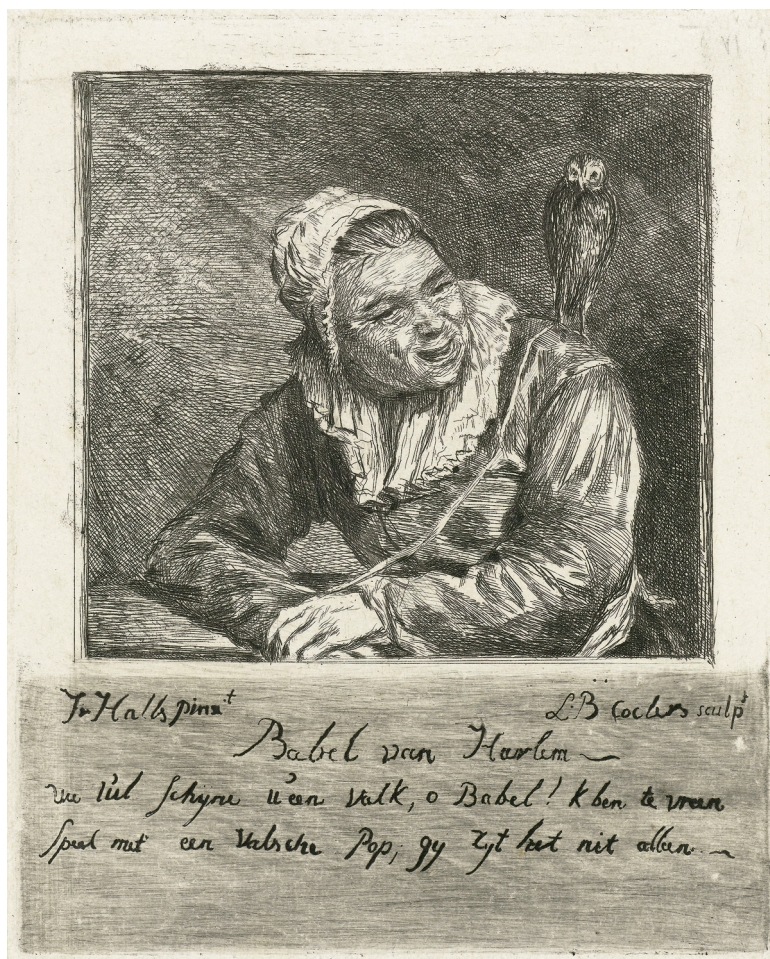 Fr. Halls pinx.t L:B Coclers sculpt
Babel van Harlem
uw uil schyne u een valk, o Babel! k ben te vreen
Speel met een valsche Pop, gy zyt het nit alleen.